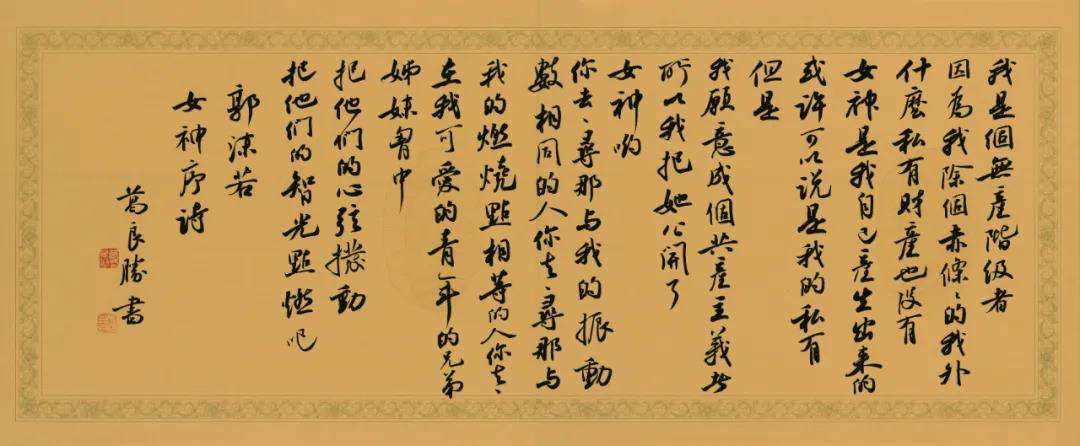 我是個無產階級者
因為我除個赤條〻的我外
什麼私有財產也没有
女神是我自己產生出來的
或許可以说是我的私有
但是
我願意成個共產主義者
所以我把她公開了
女神喲
你去〻尋那与我的振動
數相同的人你去〻尋那与
我的燃燒點相等的人你去〻
在我可愛的青年的兄弟
姊妹胷中
把他们的心弦撥動
把他们的智光點燃吧
郭沫若
女神序诗
良勝書